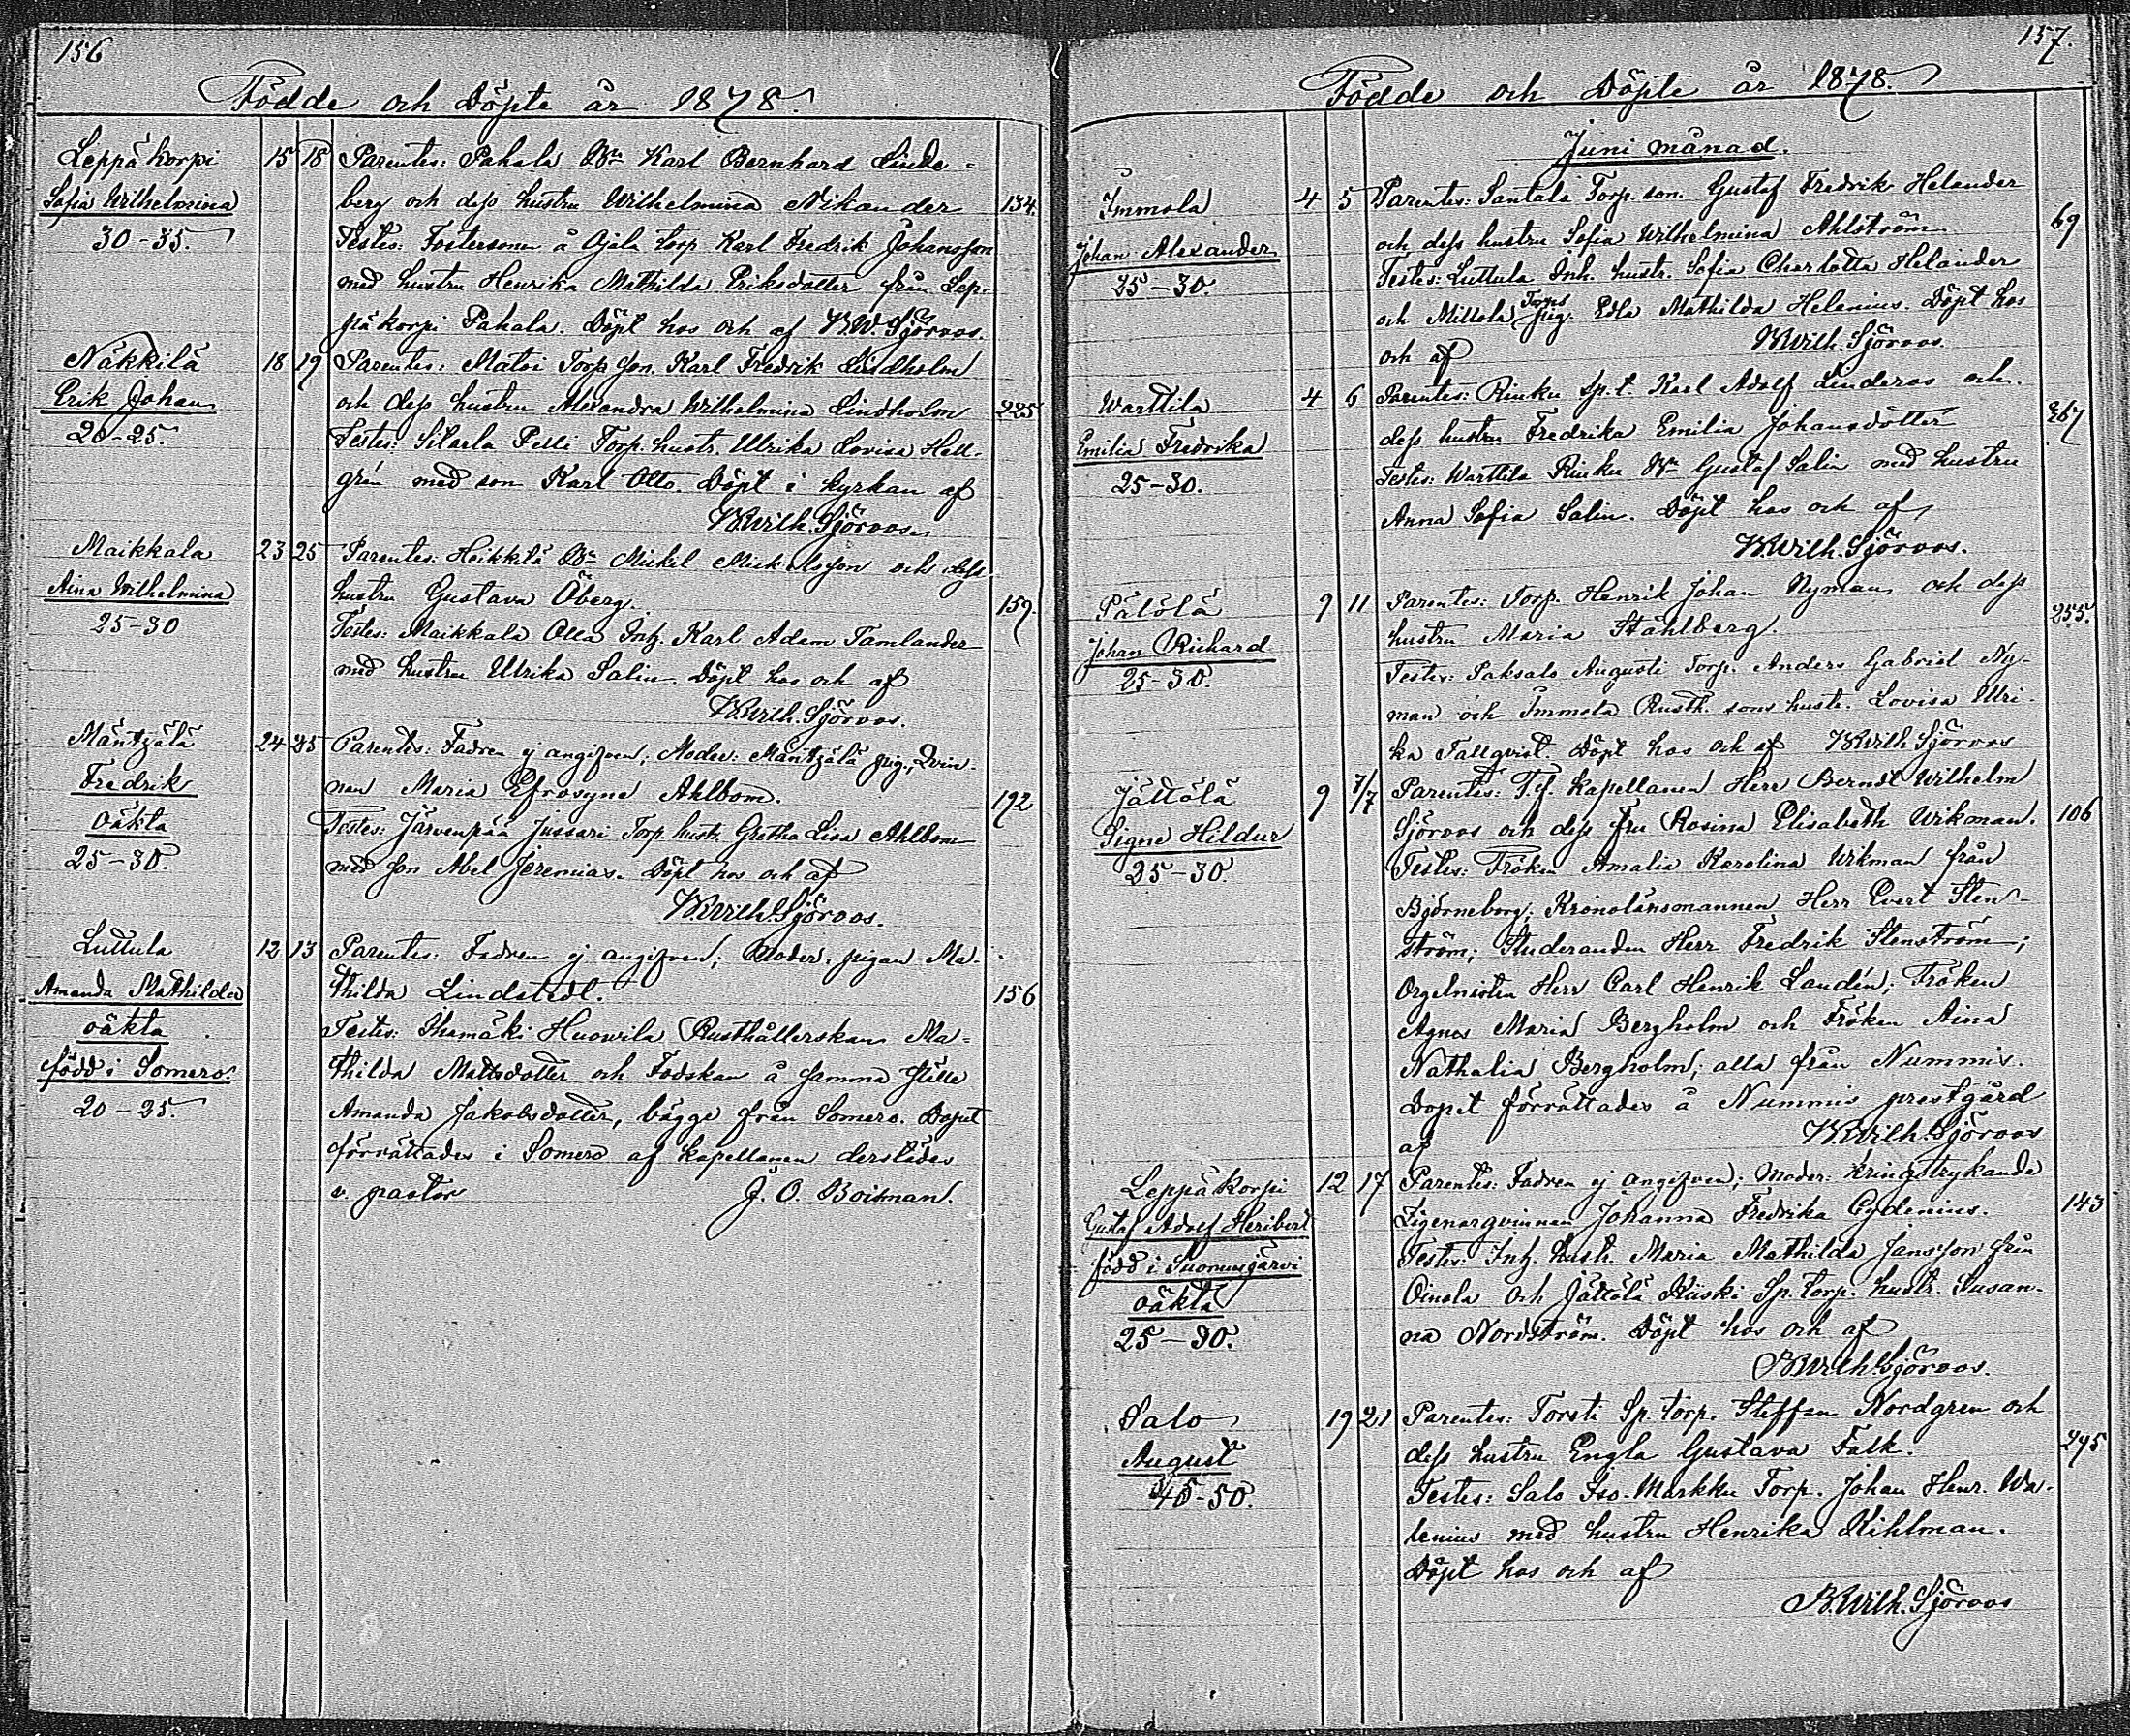 156
Födde och Döpte år 1878.
Leppäkorpi 15 18 Parentes: Pahala Bn Karl Bernhard Linde-
Sofia Wilhelmina berg och dess hustru Wilhelmina Nikander 134.
30-35. Testes: Fostersonen å Ojala torp Karl Fredrik Johansson
med hustru Henrika Mathilda Eriksdotter från Lep-
päkorpi Pahala. Döpt hos och af B.W. Sjöroos.
Näkkilä 18 19 Parentes: Matoi Torp. son. Karl Fredrik Lindholm
Erik Johan och dess hustru Alexandra Wilhelmina Lindholm 225
20-25. Testes: Silarla Pelli Torp. hustr. Ulrika Lovisa Hell-
grén med son Karl Otto. Döpt i kyrkan af
B.Wilh. Sjöroos.
Maikkala 23 25 Parentes: Heikkilä Bn Mickel Mickelsson och dess
Aina Wilhelmina hustru Gustava Öberg. 159.
25-30 Testes: Maikkala Olla Inh. Karl Adam Tamlander
med hustru Ulrika Salin. Döpt hos och af
B.Wilh. Sjöroos.
Mäntzälä 24 25 Parentes: Fadren ej angifven; Moder: Mäntzälä pig. Qvin-
Fredrik nan Maria Efrosyne Ahlbom. 192
oäkta Testes: Järvenpää Jussari Torp. hustr. Gretha Lisa Ahlbom
25-30. med son Abel Jeremias. Döpt hos och af
B.Wilh. Sjöroos.
Luttula 12 13 Parentes: Fadren ej angifven; Moder: pigan Ma-
Amanda Mathilda thilda Lindstedt. 156
oäkta Testes: Ihamäki Huowila Rusthållerskan Ma-
född i Somero. thilda Mattsdotter och Fodskan å samma ställe
20-25. Amanda Jakobsdotter, bägge från Somero. Dopet
förrättades i Somero af kapellanen derstädes
v. pastor J. O. Boisman.
157.
Födde och Döpte år 1878.
Juni månad.
Immola 4 5 Parentes: Santala Torp. son. Gustaf Fredrik Helander
Johan Alexander och dess hustru Sofia Wilhelmina Ahlström 69
25-30. Testes: Luttula Inh. hustr. Sofia Charlotta Helander
och Millola Torps pig. Edla Mathilda Helenius. Döpt hos
och af B.Wilh. Sjöroos.
Warttila 4 6 Parentes: Rinku Sp.t. Karl Adolf Linderos och
Emilia Fredrika dess hustru Fredrika Emilia Johansdotter 267
25-30. Testes: Warttila Rinku Bn Gustaf Salin med hustru
Anna Sofia Salin. Döpt hos och af
B.Wilh. Sjöroos.
Pälölä 9 11 Parentes: Torp. Henrik Johan Nyman och dess
Johan Richard hustru Maria Ståhlberg. 255.
25-30. Testes: Saksalo Augusti Torp. Anders Gabriel Ny-
man och Immola Rusth. sons hustr. Lovisa Ulri-
ka Tallqvist. Döpt hos och af B.Wilh. Sjöroos
Jättölä 9 7/7 Parentes: T.f. Kapellanen Herr Berndt Wilhelm
Signe Hildur Sjöroos och dess fru Rosina Elisabeth Wikman. 106
25-30. Testes: Fröken Amalia Karolina Wikman från
Björneborg; Kronolänsmannen Herr Evert Sten-
ström; Studeranden Herr Fredrik Stenström;
Orgelnisten Herr Carl Henrik Landén; Fröken
Agnes Maria Bergholm och Fröken Aina
Nathalia Bergholm; alla från Nummis.
Dopet förrättades å Nummis prestgård
af B.Wilh. Sjöroos
Leppäkorpi 12 17 Parentes: Fadren ej angifven; Moder: Kringstrykande
Gustaf Adolf Heribert Zigenarqvinnan Johanna Fredrika Cydenius. 143
född i Suomusjärvi Testes: Inh. hustr. Maria Mathilda Jansson från
oäkta Oinola och Jättölä Kiiski Sp. torp. hustr. Susan-
25-30. na Nordström. Döpt hos och af
B.Wilh. Sjöroos.
Salo 19 21 Parentes: Torsti Sp. torp. Steffan Nordgren och
August dess hustru Engla Gustava Falk. 295
45-50. Testes: Salo Iso-Markku Torp. Johan Henr. Wa-
lenius med hustru Henrika Kihlman.
Döpt hos och af
B.Wilh. Sjöroos